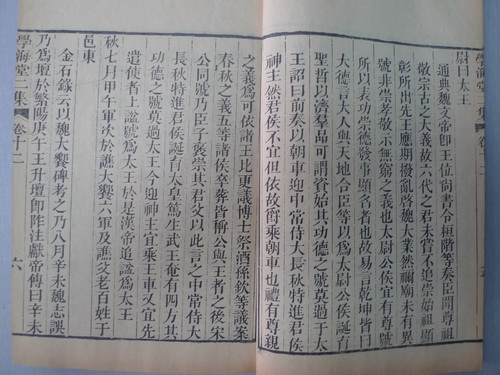 尉曰太王
通典魏文帝即王位尚書令桓階等奏臣聞尊祖
敬宗古之大義故六代之君未嘗不追崇始祖顯
彰所出先王應期撥亂啟魏大業然禰廟未有異
號非崇孝敬示無窮之義也太尉公侯宜有尊號
所以表功崇德發事顯名者也故易言乾坤皆曰
大德言大人與天地合臣等以爲太尉公侯誕育
聖哲以濟羣品可謂資始其功德之號莫過于太
王詔曰前奏以朝車迎中常侍大長秋特進君侯
神主然君侯不宜但依故爵乘朝車也禮有尊親
之義爲可依諸王比更議博士祭酒孫欽等議案
春秋之義五等諸侯卒葬皆稱公與王者之後宋
公同號乃臣子褒崇其君父以此言之中常侍大
長秋特進君侯誕育太皇篤生武王奄有四方其
功德之號莫過太王今迎神主宜乘王車又宜先
遣使者上諡號爲太王於是漢帝追諡爲太王
秋七月甲午軍次於譙大饗六軍及譙父老百姓于
邑東
金石錄云以魏大饗碑考之乃八月辛未魏志誤
乃爲壇於繁陽庚午王升壇即阼注獻帝傳曰辛未
學海堂二集 卷十二 六